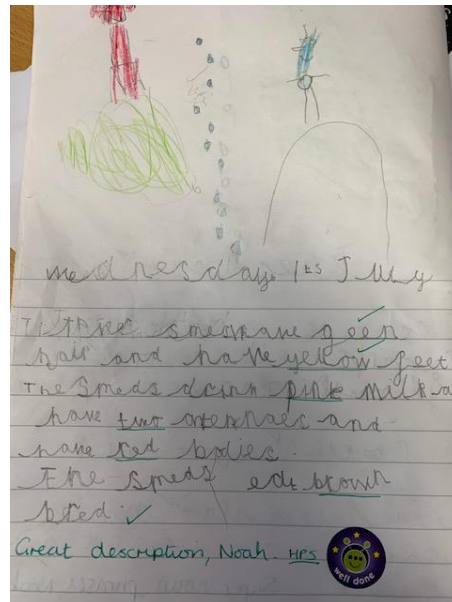 wednesday 1ts July
smeds have geen
hair and have yellow feet
The Smeds drinn pink milk a
have two antennaes and
have red bodies.
The smeds edt brown
bred.
Great description, Noah. HPS
well done